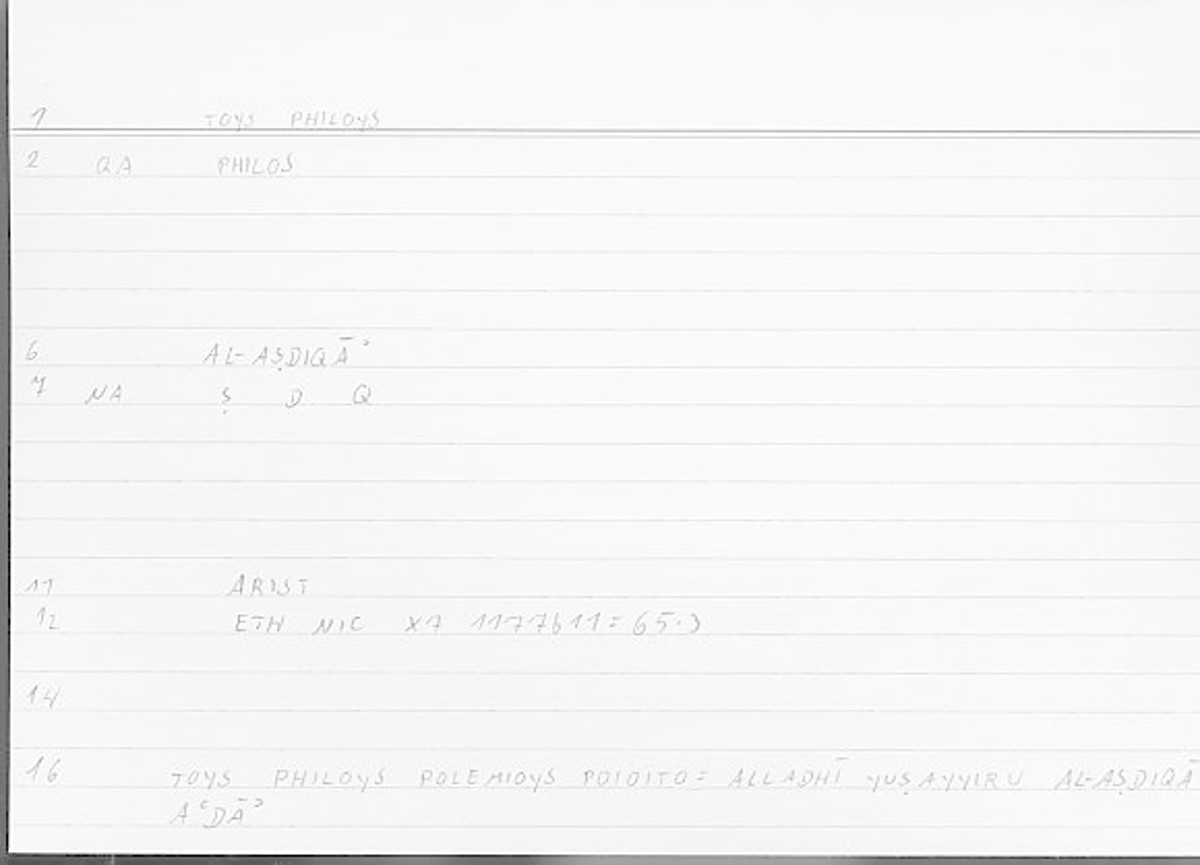 1 TOYS PHILOYS
2 QA PHILOS
6 AL-AṢDIQĀʾ
7 NA Ṣ D Q
11 ARIST
12 ETH NIC X7 1177b11= 65.3
14
16 TOYS PHILOYS POLEMIOYS POIOITO= ALLADHĪ YUṢAYYIRU AL-AṢDIQĀ
AʿDĀʾ